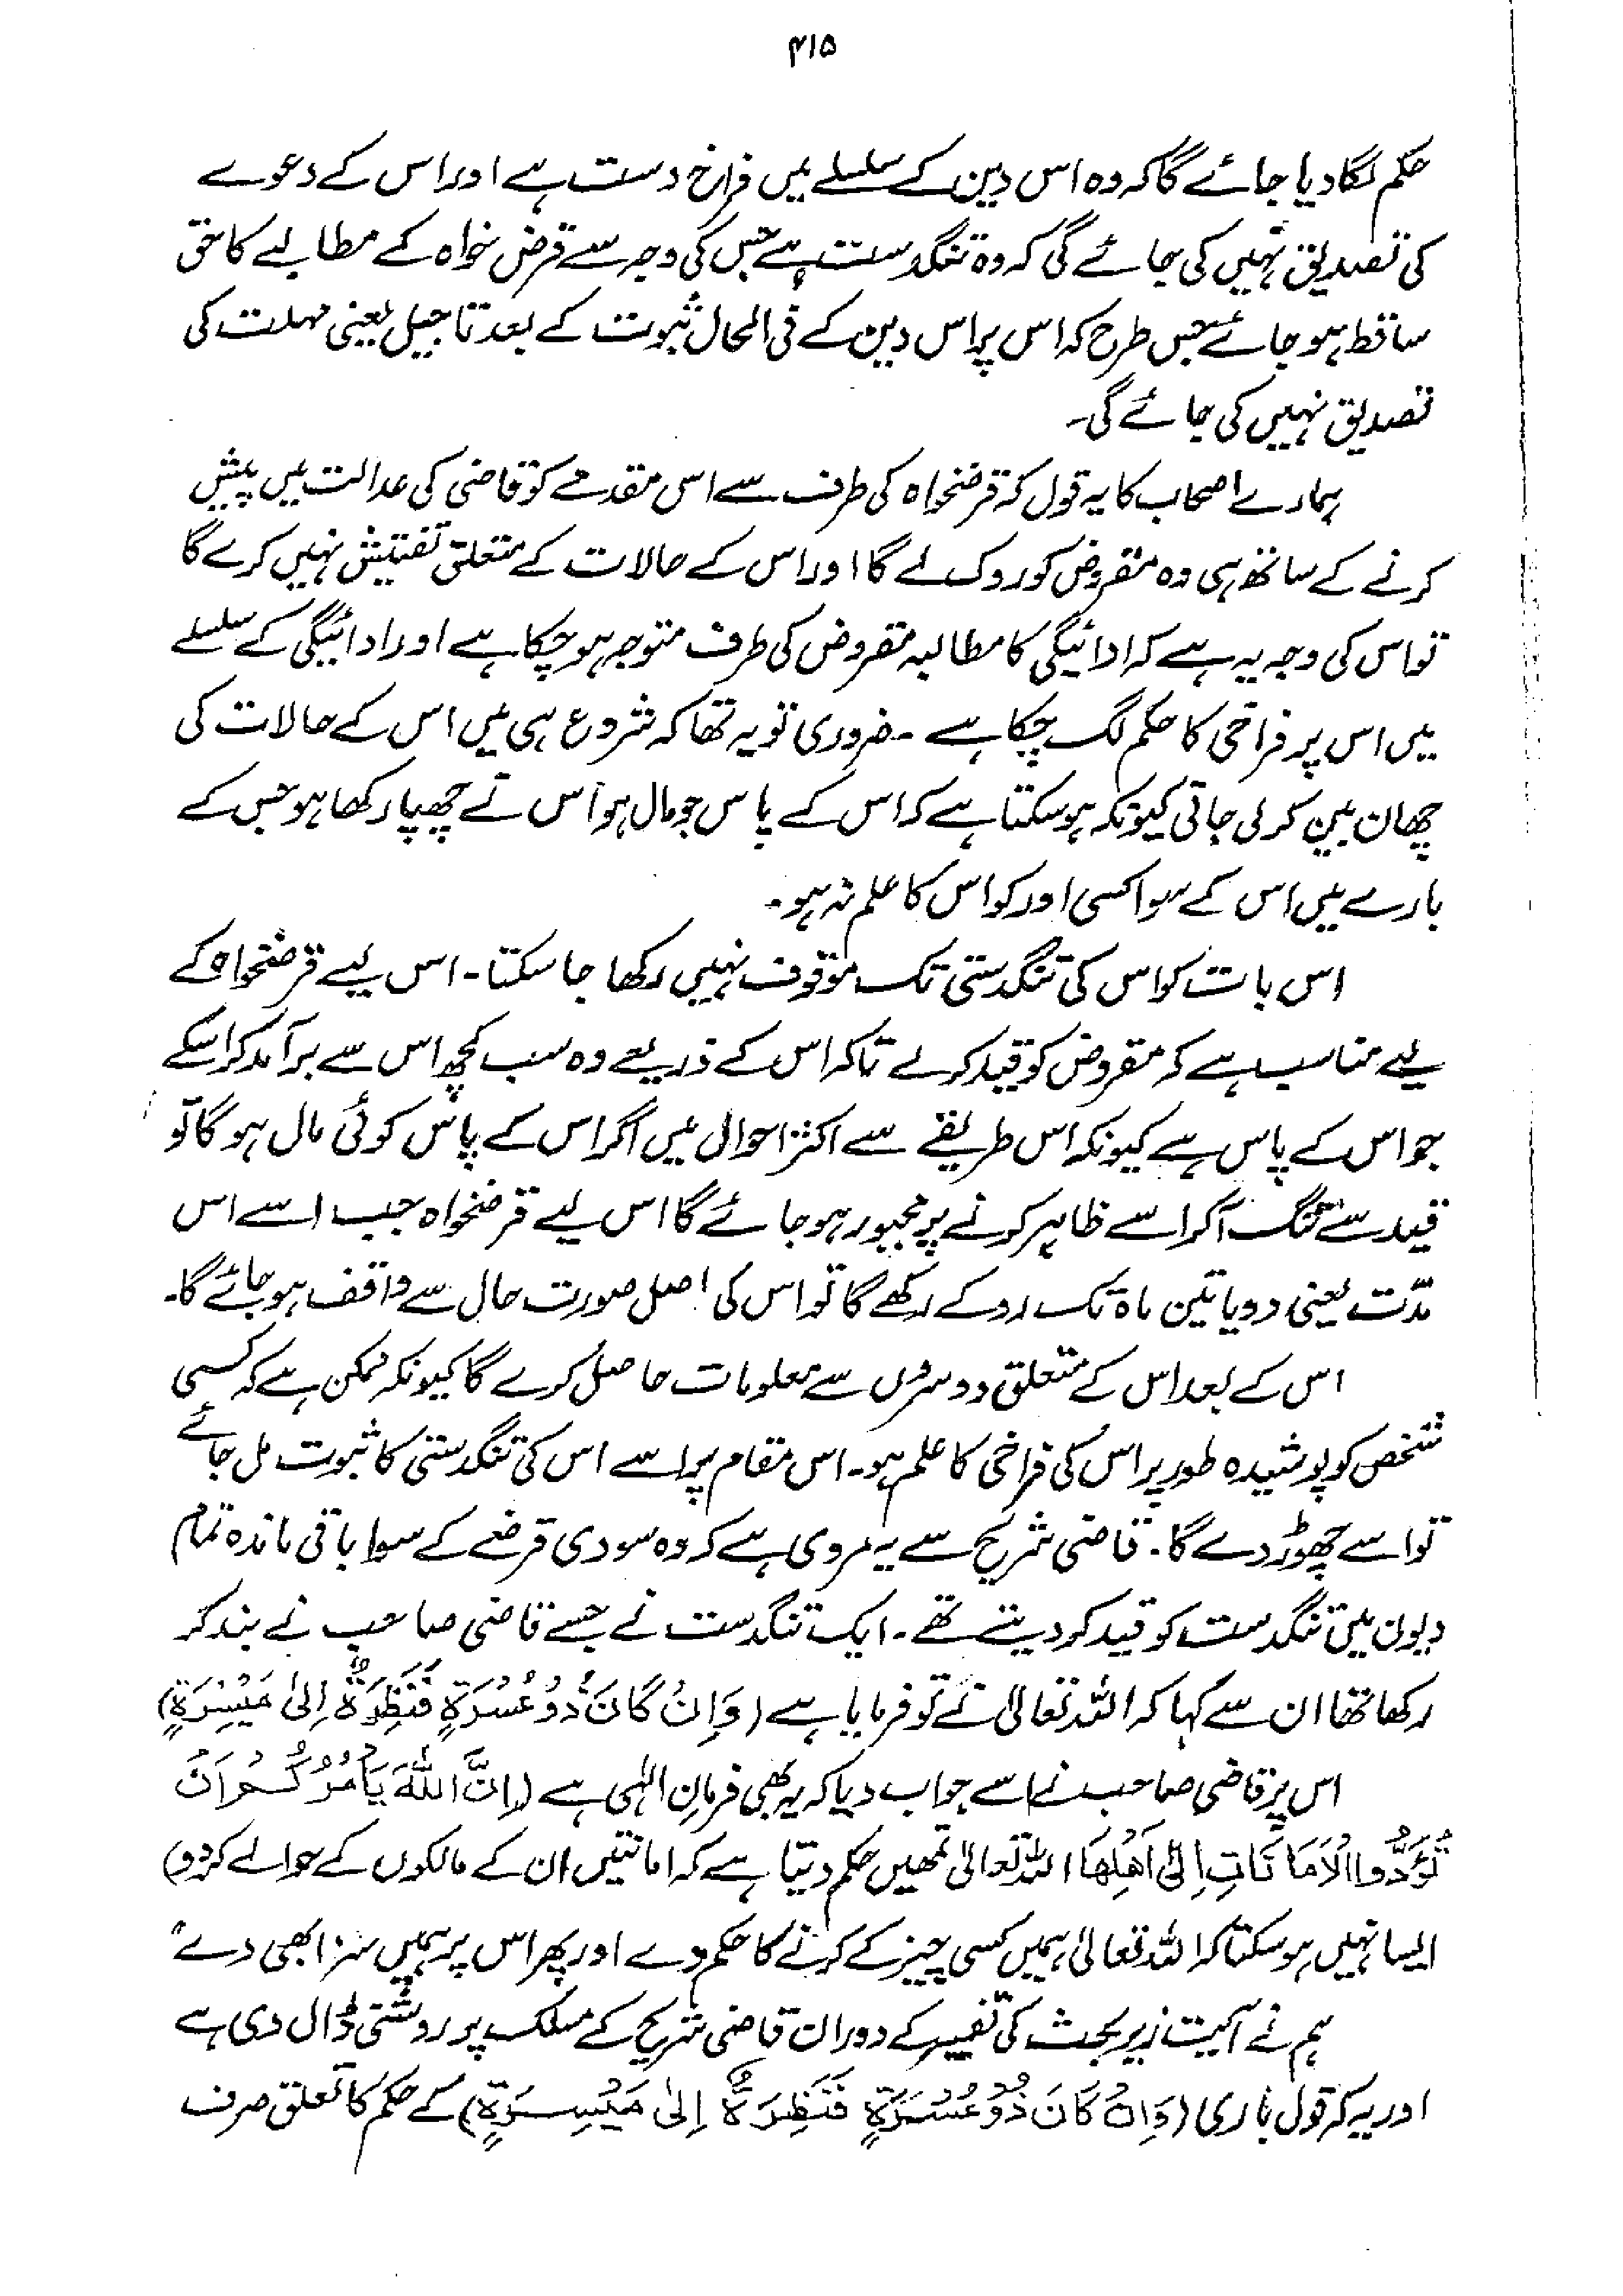 ۴۱۵
حکم لگا دیا جائے گا کہ وہ اس دین کے سلسلے میں فراخ دست ہے اور اس کے دعوے
کی تصدیق نہیں کی جائے گی کہ وہ تنگدست ہے جس کی وجہ سے قرض خواہ کے مطالبے کا حق
ساقط ہو جائے جس طرح کہ اس پر اس دین کے فی الحال ثبوت کے بعد تاجیل یعنی مہلت کی
تصدیق نہیں کی جائے گی۔
ہمارے اصحاب کا یہ قول کہ قرضخواہ کی طرف سے اس مقدمے کو قاضی کی عدالت میں پیش
کرنے کے ساتھ ہی وہ مقروض کو روک لے گا اور اس کے حالات کے متعلق تفتیش نہیں کرے گا
تو اس کی وجہ یہ ہے کہ ادائیگی کا مطالبہ مقروض کی طرف متوجہ ہو چکا ہے اور ادائیگی کے سلسلے
میں اس پر فراخی کا حکم لگ چکا ہے۔ ضروری تو یہ تھا کہ شروع ہی میں اس کے حالات کی
چھان بین کر لی جاتی کیونکہ ہو سکتا ہے کہ اس کے پاس جو مال ہو اس نے چھپا رکھا ہو جس کے
بارے میں اس کے سوا کسی اور کو اس کا علم نہ ہو۔
اس بات کو اس کی تنگدستی تک موقوف نہیں رکھا جا سکتا۔ اس لیے قرضخواہ کے
لیے مناسب ہے کہ مقروض کو قید کر لے تاکہ اس کے ذریعے وہ سب کچھ اس سے برآمد کرا سکے
جو اس کے پاس ہے کیونکہ اس طریقے سے اکثر احوال میں اگر اس کے پاس کوئی مال ہو گا تو
قید سے تنگ آکر اسے ظاہر کرنے پر مجبور ہو جائے گا اس لیے قرضخواہ جب اسے اس
مدّت یعنی دو یا تین ماہ تک روکے رکھے گا تو اس کی اصل صورت حال سے واقف ہو جائے گا۔
اس کے بعد اس کے متعلق دوسروں سے معلومات حاصل کرے گا کیونکہ ممکن ہے کہ کسی
شخص کو پوشیدہ طور پر اس کی فراخی کا علم ہو۔ اس مقام پر اسے اس کی تنگدستی کا ثبوت مل جائے
تو اسے چھوڑ دے گا۔ قاضی شریح سے یہ مروی ہے کہ وہ سودی قرضے کے سوا باقی ماندہ تمام
دیون میں تنگدست کو قید کر دیتے تھے۔ ایک تنگدست نے جسے قاضی صاحب نے بند کر
رکھا تھا ان سے کہا کہ اللہ تعالیٰ نے تو فرمایا ہے (وَاِنْ كَانَ ذُوْ عُسْرَةٍ فَنَظِرَةٌ اِلىٰ مَيْسَرَةٍ)
اس پر قاضی صاحب نے اسے جواب دیا کہ یہ بھی فرمانِ الٰہی ہے (اِنَّ اللهَ يَأْمُرُكُمْ اَنْ
تُؤَدُّوا الْاَمَانَاتِ اِلىٰ اَهْلِهَا اللہ تعالیٰ تمھیں حکم دیتا ہے کہ امانتیں ان کے مالکوں کے حوالے کر دو)
ایسا نہیں ہو سکتا کہ اللہ تعالیٰ ہمیں کسی چیز کے کرنے کا حکم دے اور پھر اس پر ہمیں سزا بھی دے"
ہم نے آیت زیر بحث کی تفسیر کے دوران قاضی شریح کے مسلک پر روشنی ڈال دی ہے
اور یہ کہ قول باری (وَاِنْ كَانَ ذُوْ عُسْرَةٍ فَنَظِرَةٌ اِلىٰ مَيْسَرَةٍ) کے حکم کا تعلق صرف